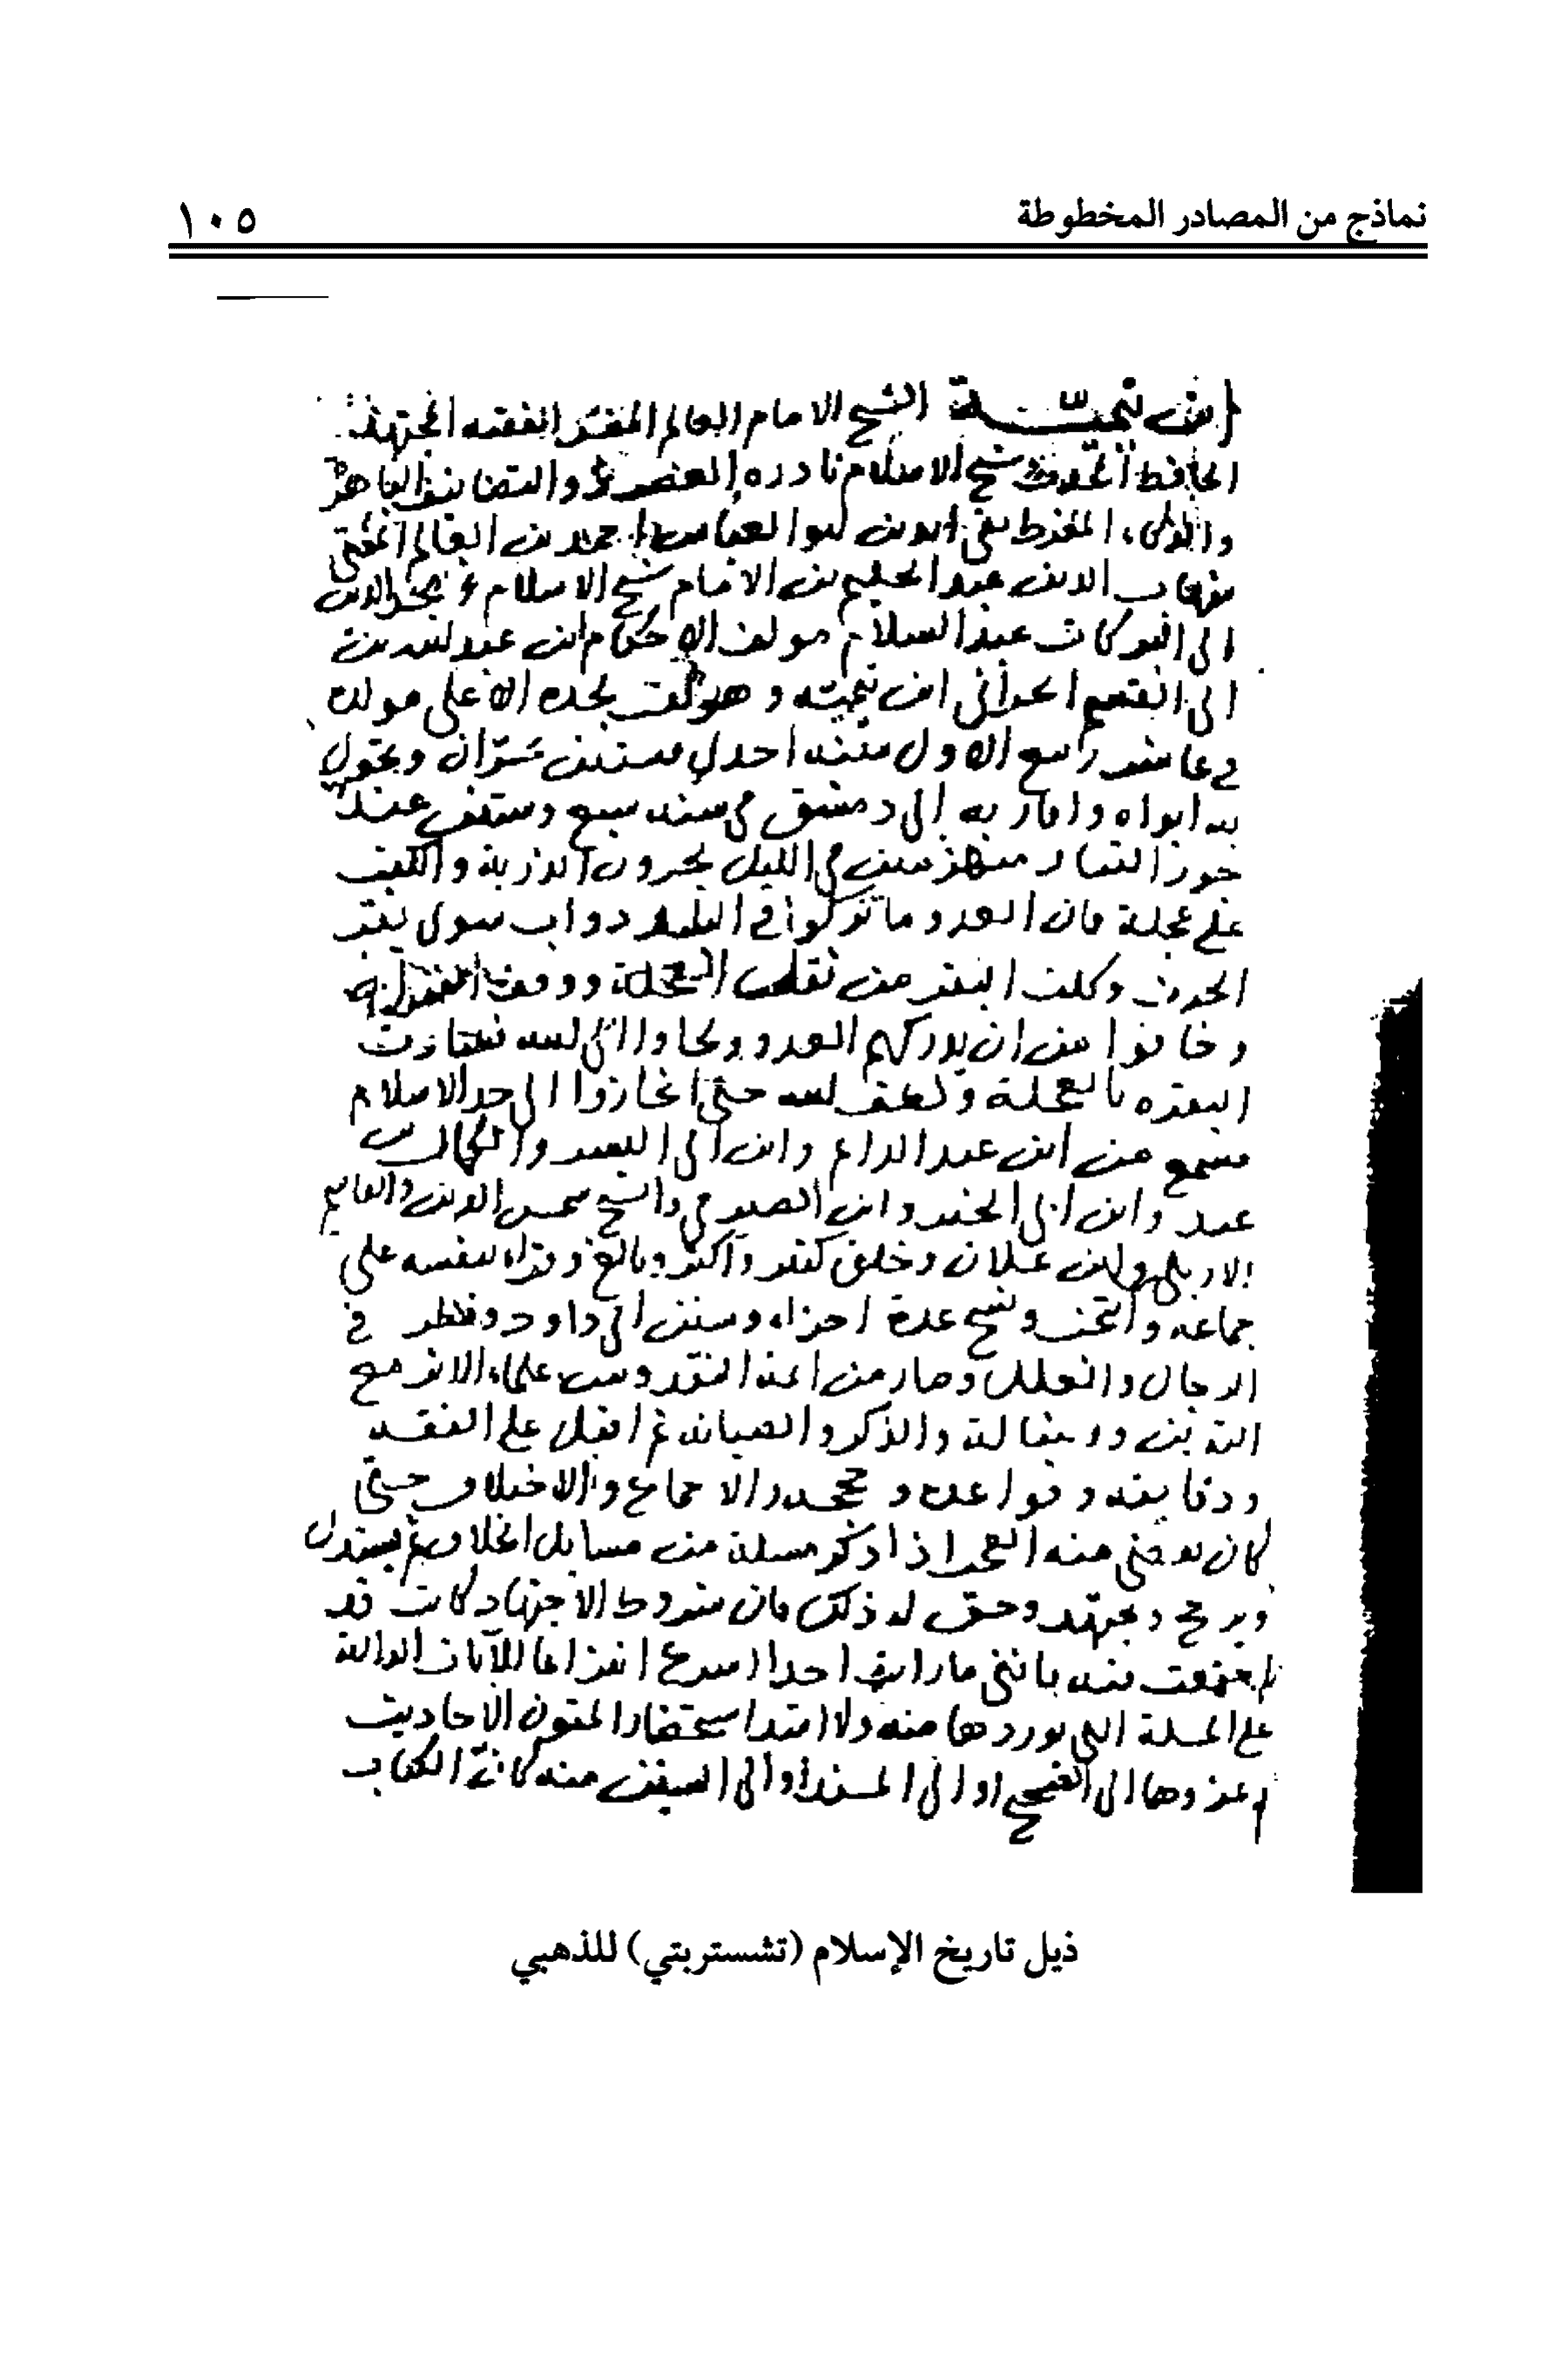 نماذج من المصادر المخطوطة ١٠٥
ابن تيميّة الشيخ الامام العالم المفسّر الفقيه المجتهد
الحافظ المحدث شيخ الاسلام نادره العصر ذو التصانيف الباهرة
والذكاء المفرط تقي الدين ابو العباس احمد بن العالم المفتي
شهاب الدين عبد الحليم بن الامام شيخ الاسلام مجد الدين
ابى البركات عبد السلام مولف الاحكام ابن عبد الله بن
ابى القسم الحراني ابن تيميّه وهو لقب لجده الاعلى مولده
في عاشر ربيع الاول سنه احدى وستين بحرّان وتحول
به ابواه واقاربه إلى دمشق في سنه سبع وستين عند
جور التتار منهزمين في الليل يجرون الذرية والكتب
على عجلة فان العدو ما تركوا في البلد دواب سوى بقر
الحرث وكلت البقر من ثقل العجلة ووقف الفرار
وخافوا من ان يدركهم العدو ولجاوا الى الله فسارت
البقره بالعجلة ولطف الله حتى انحازوا الى حد الاسلام
فسمع من ابن عبد الدايم وابن ابى اليسر والكمال بن
عبد وابن ابى الخير وابن الصيرفي والشيخ شمس الدين والقاسم
الاربلي وابن علان وخلق كثير واكثر وبالغ وقراء بنفسه على
جماعه وانتخب ونسخ عدة اجزاء وسنن ابى داود ونظر في
الرجال والعلل وصار من ائمة النقد ومن علماء الاثر مع
التدين والذكر والصيانه ثم اقبل على الفقه
ودقايقه وقواعده وحججه والاجماع والاختلاف حتى
كان يقضى منه العجب اذا ذكر مسلة من مسايل الخلاف ثم يستدل
ويرجح ويجتهد وحق له ذلك فان شروط الاجتهاد كانت قد
اجتمعت فيه فانني ما رايت احدا اسرع انتزاعا للآيات الدالة
على المسلة التي يوردها منه ولا اشد استحضارا لمتون الاحاديث
وعزوها الى الصحيح او الى المسند او الى السنن منه كان الكتاب
ذيل تاريخ الإسلام (تشستربتي) للذهبي